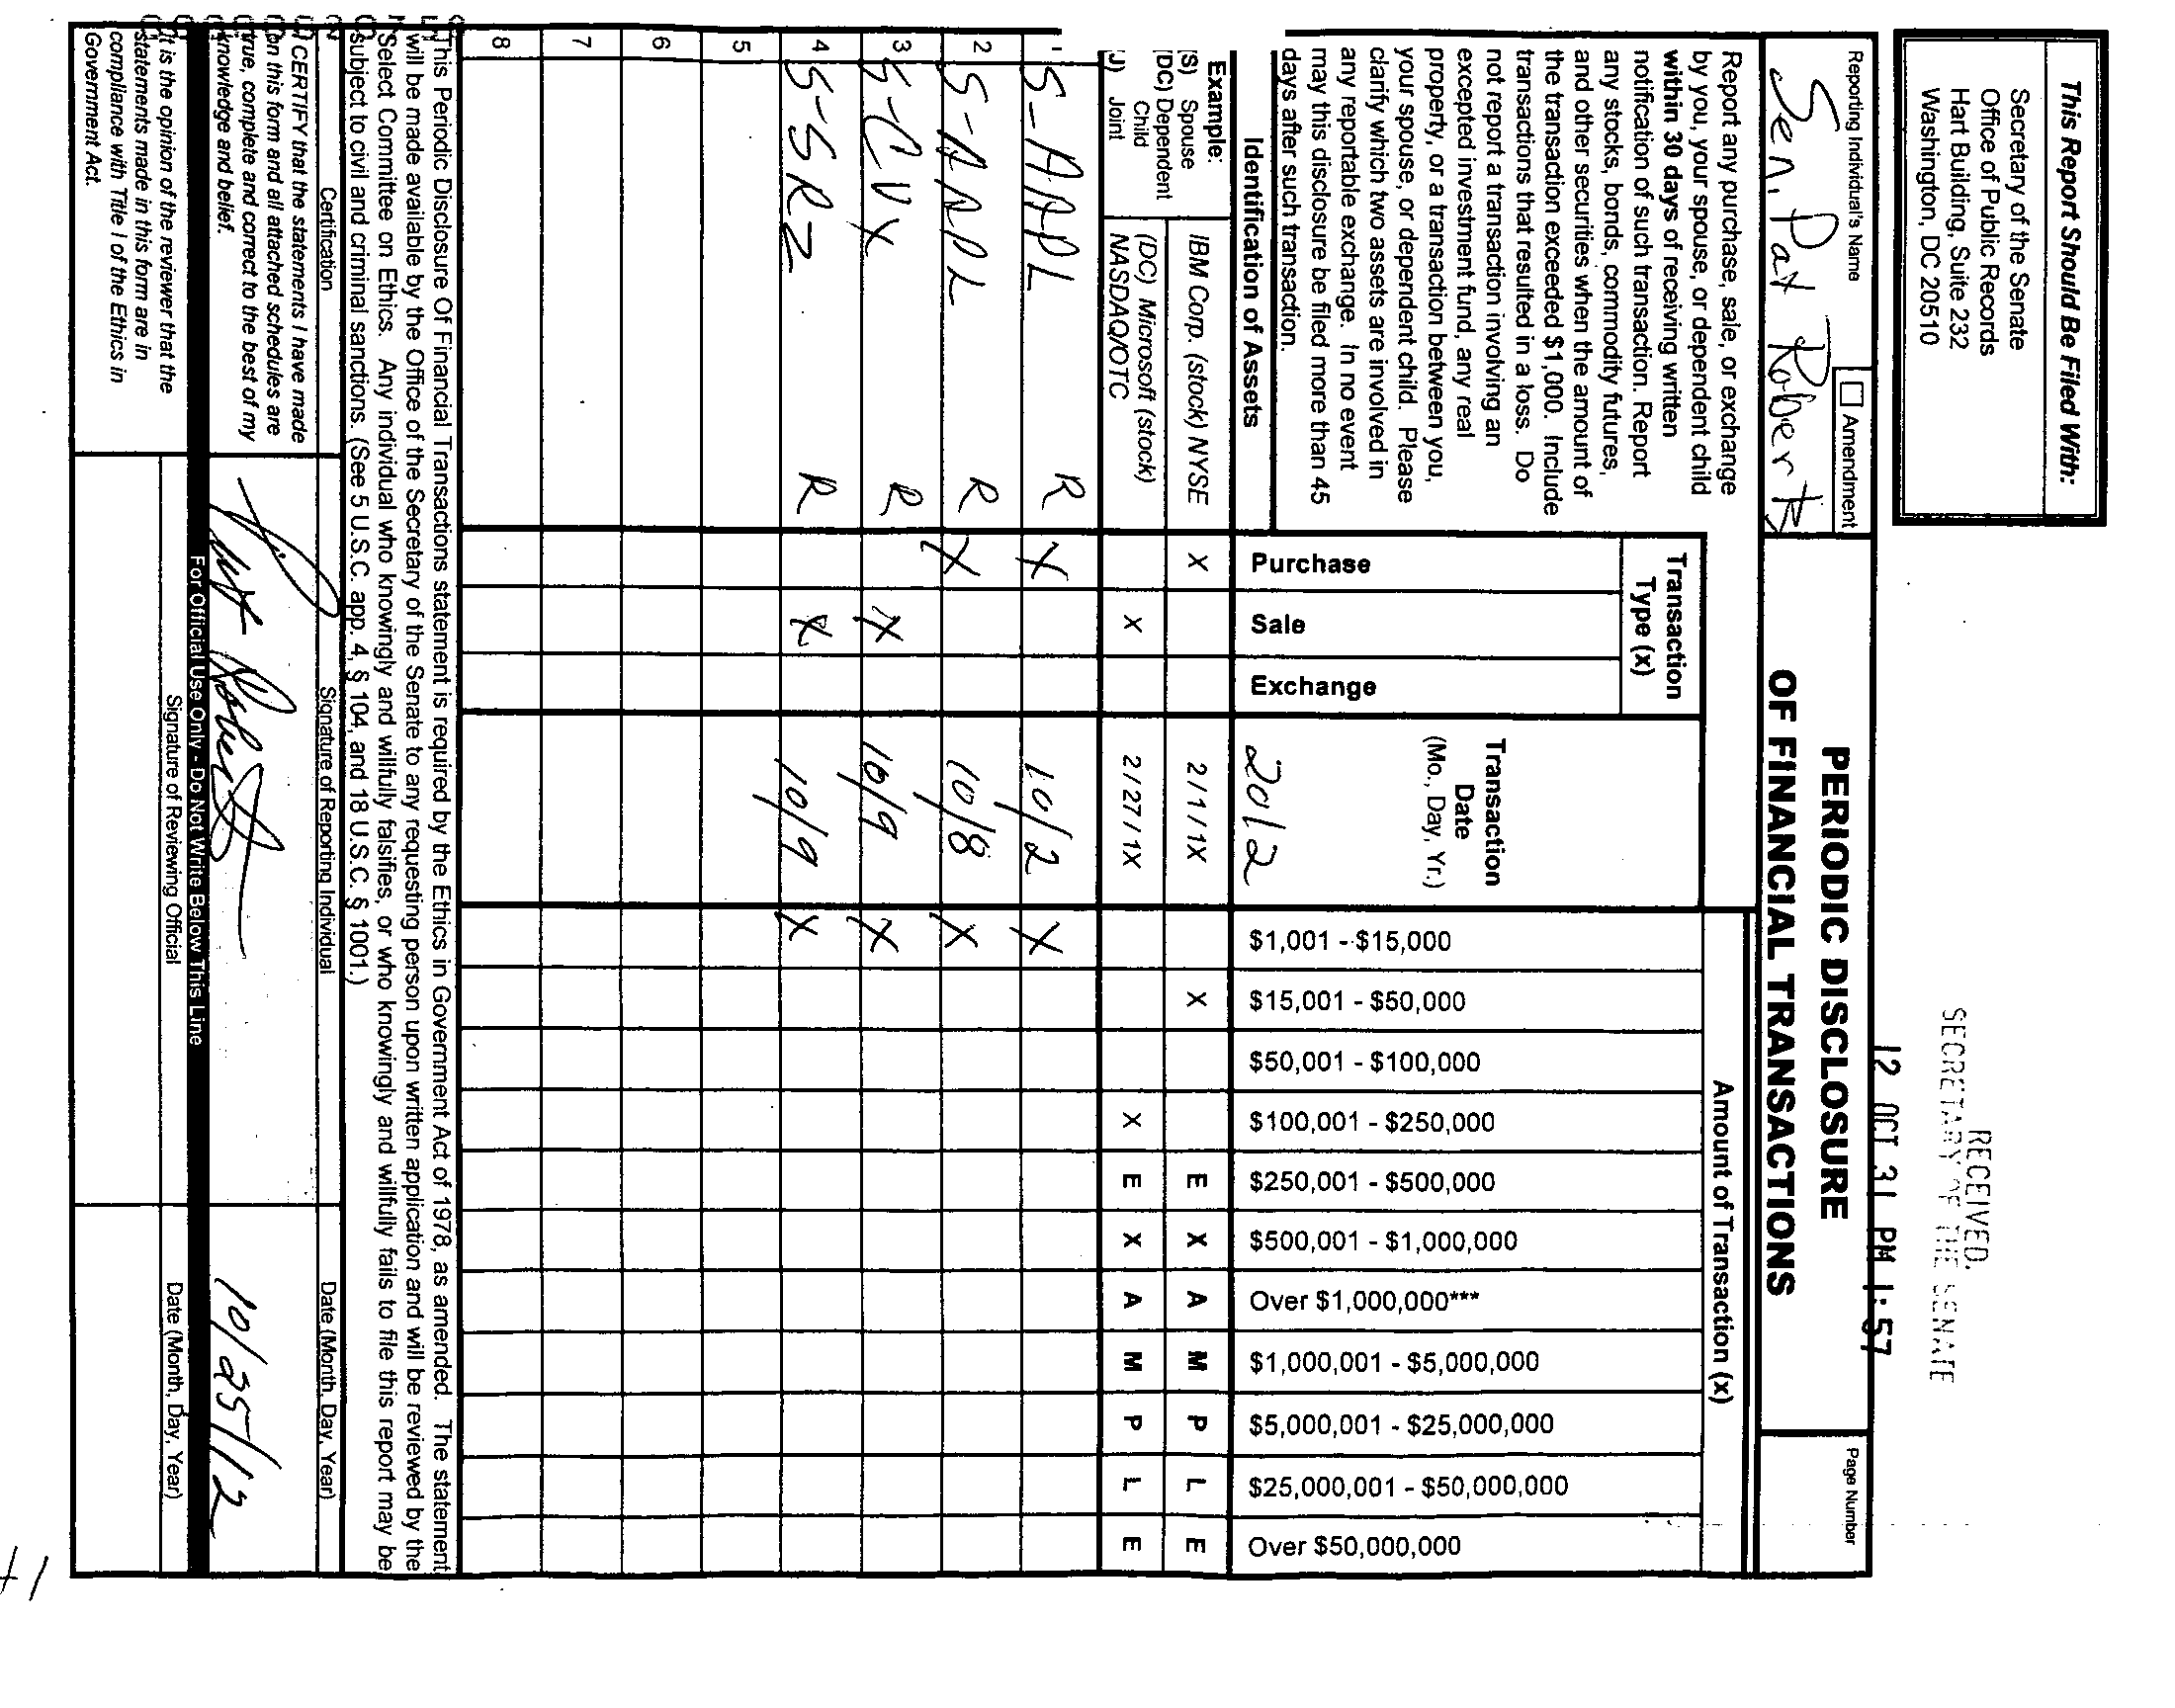 This Report Should Be Filed With:
Secretary of the Senate
Office of Public Records
Hart Building, Suite 232
Washington, DC 20510
RECEIVED
SECRETARY OF THE SENATE
12 OCT 31 PM 1:57
Reporting Individual's Name
Sen. Pat Roberts
Amendment
PERIODIC DISCLOSURE
OF FINANCIAL TRANSACTIONS
Page Number
Report any purchase, sale, or exchange
by you, your spouse, or dependent child
within 30 days of receiving written
notification of such transaction. Report
any stocks, bonds, commodity futures,
and other securities when the amount of
the transaction exceeded $1,000. Include
transactions that resulted in a loss. Do
not report a transaction involving an
excepted investment fund, any real
property, or a transaction between you,
your spouse, or dependent child. Please
clarify which two assets are involved in
any reportable exchange. In no event
may this disclosure be filed more than 45
days after such transaction.
Identification of Assets
Transaction
Type (x)
Purchase
Sale
Exchange
Transaction
Date
(Mo., Day, Yr.)
2012
Amount of Transaction (x)
$1,001 - $15,000
$15,001 - $50,000
$50,001 - $100,000
$100,001 - $250,000
$250,001 - $500,000
$500,001 - $1,000,000
Over $1,000,000***
$1,000,001 - $5,000,000
$5,000,001 - $25,000,000
$25,000,001 - $50,000,000
Over $50,000,000
Example:
(S) Spouse
(DC) Dependent
Child
(J) Joint
IBM Corp. (stock) NYSE X 2/1/1X X E X A M P L E
(DC) Microsoft (stock)
NASDAQ/OTC X 2/27/1X X E X A M P L E
1 S-AAPL R X 10/2 X
2 S-AAPL R X 10/8 X
3 S-CVX R X 10/9 X
4 S-SRZ R X 10/9 X
5
6
7
8
This Periodic Disclosure Of Financial Transactions statement is required by the Ethics in Government Act of 1978, as amended. The statement
will be made available by the Office of the Secretary of the Senate to any requesting person upon written application and will be reviewed by the
Select Committee on Ethics. Any individual who knowingly and willfully falsifies, or who knowingly and willfully fails to file this report may be
subject to civil and criminal sanctions. (See 5 U.S.C. app. 4, § 104, and 18 U.S.C. § 1001.)
Certification
Signature of Reporting Individual
Date (Month, Day, Year)
I CERTIFY that the statements I have made
on this form and all attached schedules are
true, complete and correct to the best of my
knowledge and belief.
Pat Roberts
10/25/12
For Official Use Only - Do Not Write Below This Line
It is the opinion of the reviewer that the
statements made in this form are in
compliance with Title I of the Ethics in
Government Act.
Signature of Reviewing Official
Date (Month, Day, Year)